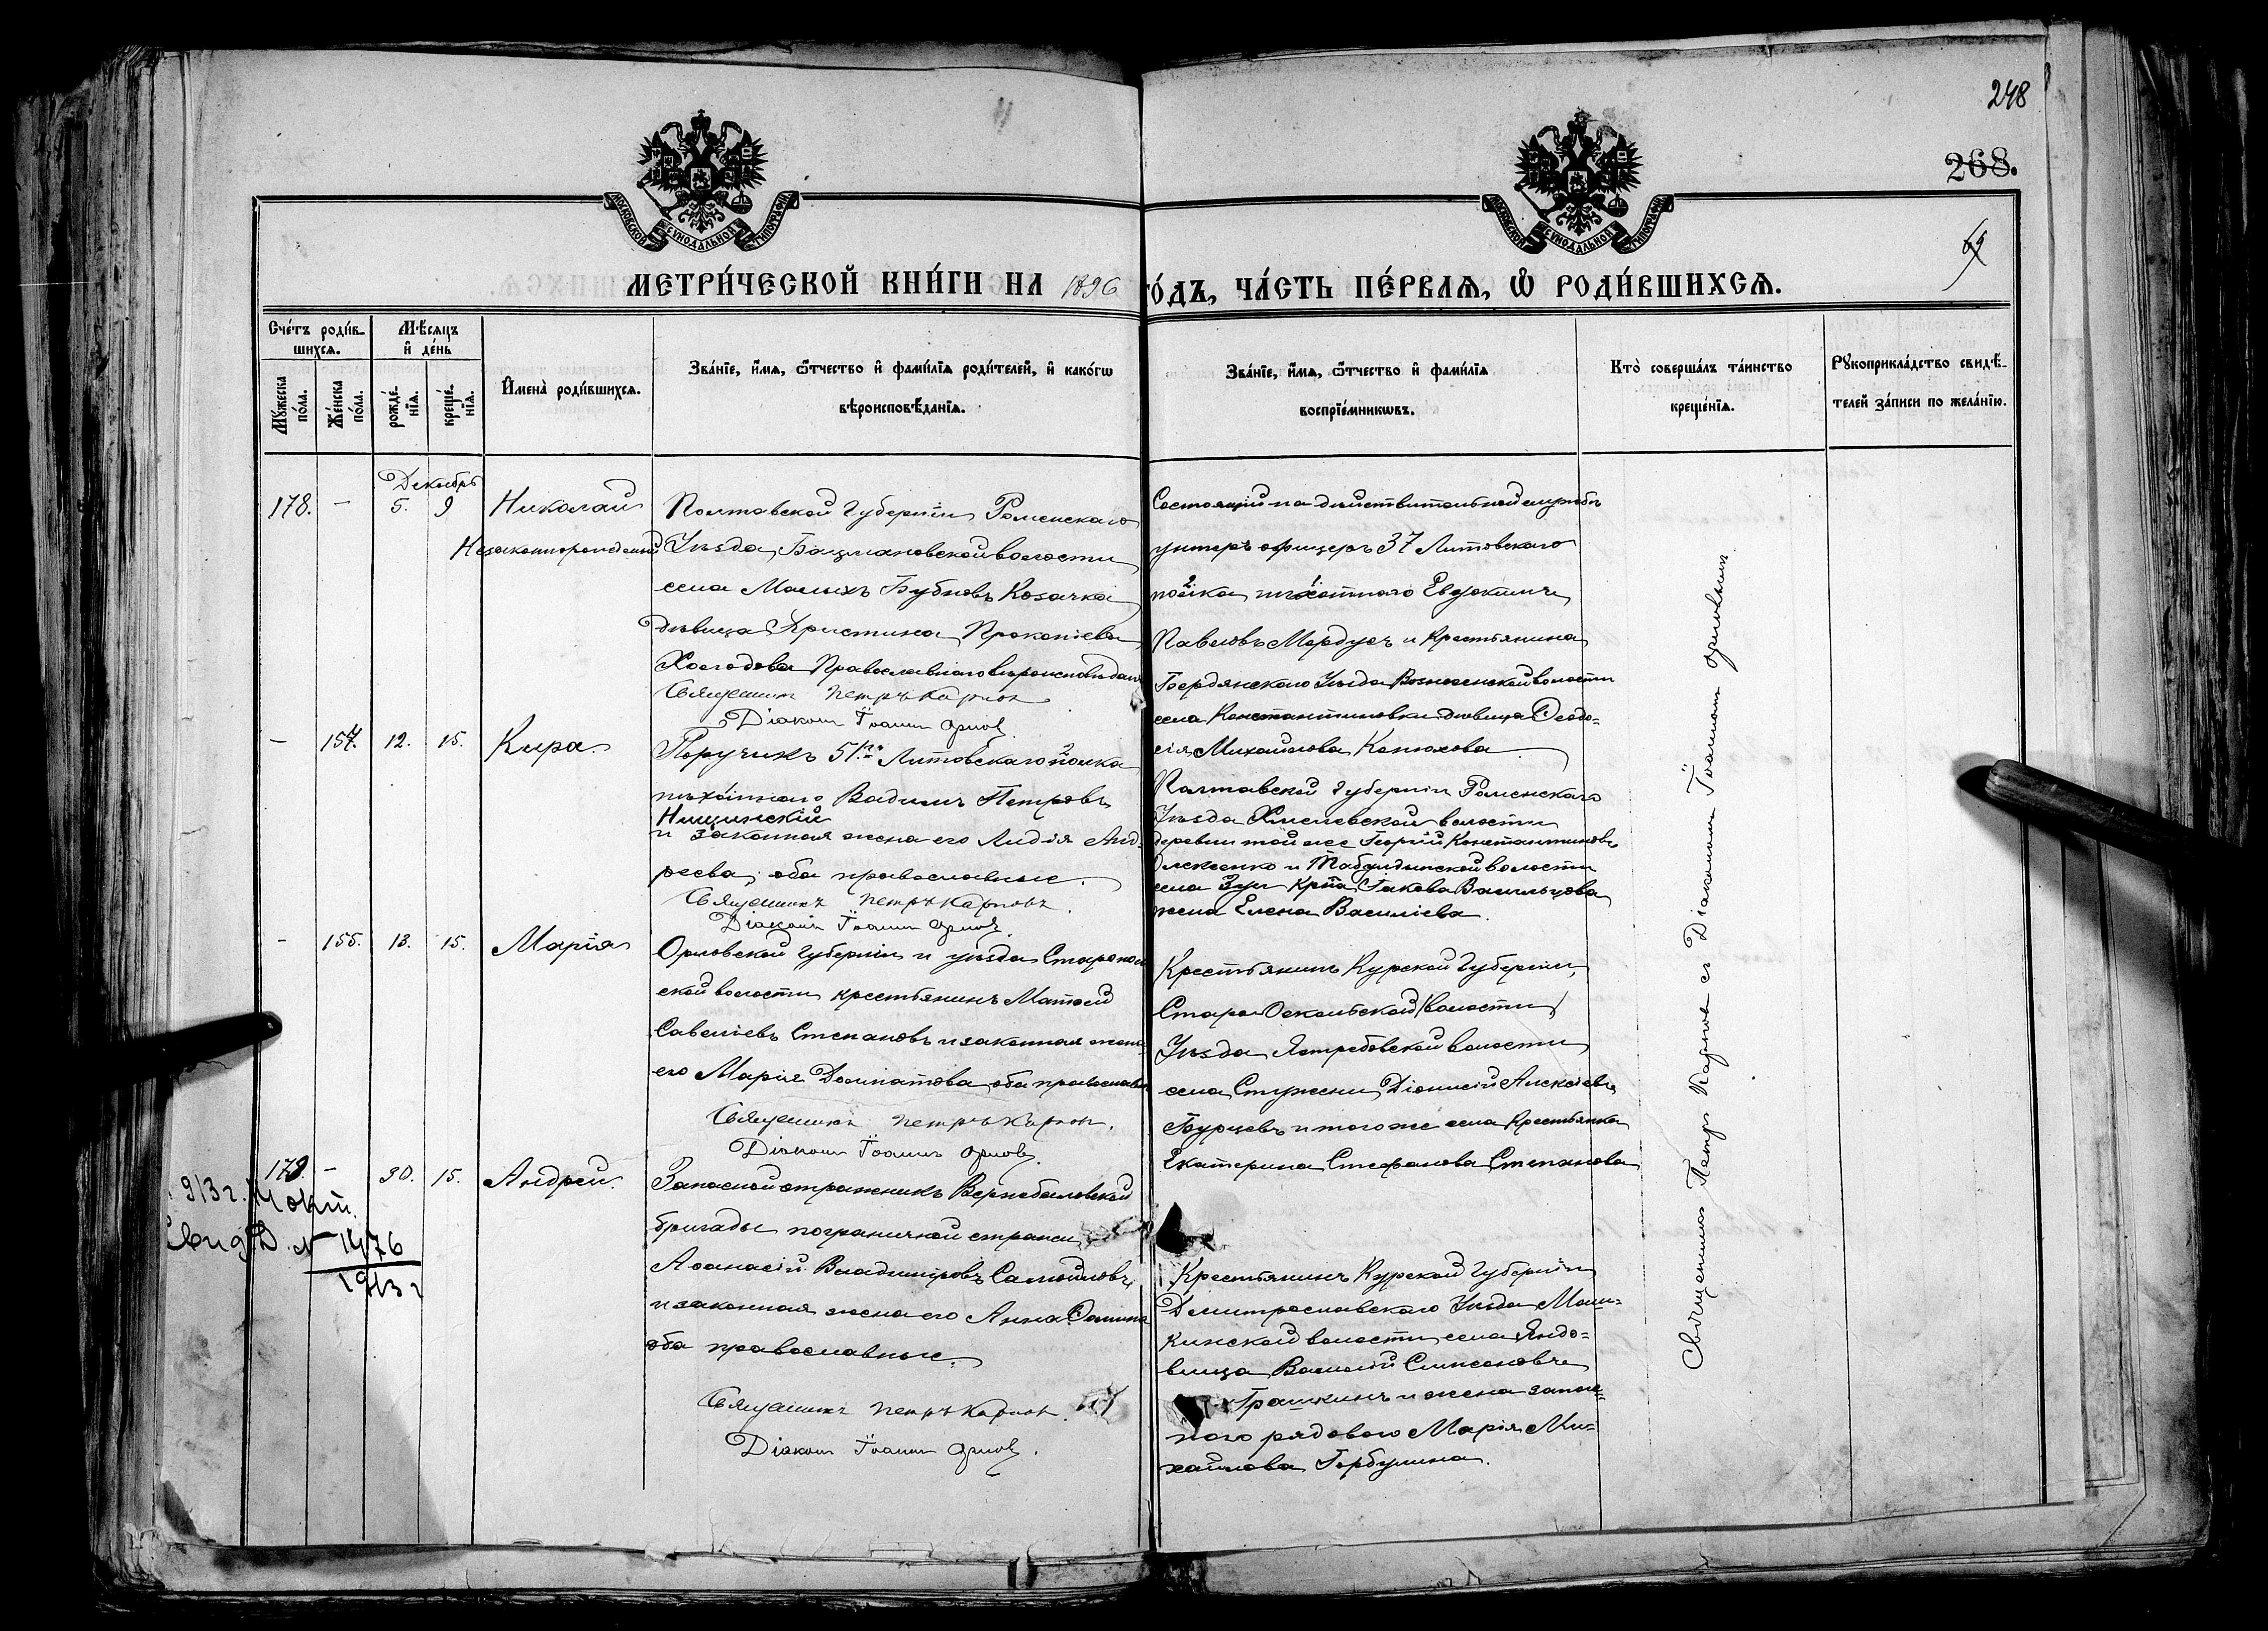 248
268.
69
МОСКОВСКОЙ СѴНОДАЛЬНОЙ ТИПОГРАФІИ
МОСКОВСКОЙ СѴНОДАЛЬНОЙ ТИПОГРАФІИ
МЕТРИ́ЧЕСКОЙ КНИ́ГИ НА 1896 ГО́ДЪ, ЧА́СТЬ ПЕ́РВАѦ, Ѡ҆ РОДИ́ВШИХСѦ.
Сче́тъ роди́в-
шихсѧ.
Мꙋ́жеска по́ла.
Же́нска по́ла.
Мѣ́сѧцъ
и҆ де́нь
рожде́-
нїѧ.
креще́-
нїѧ.
И҆мена̀ роди́вшихсѧ.
Зва́нїе, и҆́мѧ, ѻ҆́тчество и҆ фами́лїѧ роди́телей, и҆ како́гѡ
вѣроисповѣ́данїѧ.
Зва́нїе, и҆́мѧ, ѻ҆́тчество и҆ фами́лїѧ
воспрїе́мникѡвъ.
Кто̀ соверша́лъ та́инство
креще́нїѧ.
Рꙋкоприкла́дство свидѣ́-
телей за́писи по жела́нїю.
Декабрь
178. — 5. 9 Николай
Незаконнорожденный
Полтавской Губерніи Роменскаго
Уѣзда, Бацмановской волости
села Малыхъ Бубновъ Козачка
дѣвица Христина Прокопіева
Холодова Православнаго вѣроисповѣданія
Священникъ Петръ Карповъ
Діаконъ Іоаннъ Орловъ.
Состоящій на дѣйствительной службѣ
унтеръ офицеръ 37 Литовскаго
полка пѣхотнаго Евдокимъ
Павловъ Мордусъ и Крестьянина
Бердянскаго Уѣзда Вознесенской волости
села Константиновки дѣвица Ѳеодо-
сія Михайлова Конюхова
— 157. 12. 15. Кира.
Поручикъ 51.го Литовскаго полка
пѣхотнаго Вадимъ Петровъ
Нищинскій
и законная жена его Лидія Анд-
реева, оба православные.
Священникъ Петръ Карповъ.
Діаконъ Іоаннъ Орловъ.
Полтавской Губерніи Роменскаго
Уѣзда Хмелевской волости
деревни той же Георгій Константиновъ
Олексенко и Табурдинской волости
села Зуи Крна Іакова Васильцова
жена Елена Василіева.
— 155. 13. 15. Марія
Орловской Губерніи и уѣзда
ской волости крестьянинъ Матѳей
Савеліевъ Степановъ и законная жена
его Марія Домнатова, оба православн
Священникъ Петръ Карповъ.
Діаконъ Іоаннъ Орловъ.
Крестьянинъ Курской Губерніи,
Старо Оскольской (волости)
Уѣзда Ястребовской волости
села Стужени Діонисій Алексіевъ
Бурцевъ и того же села Крестьянка
Екатерина Стефанова Степанова
179. — 30. 15. Андрей.
Запасной стражникъ Вержболовской
бригады пограничной стражи
Аѳанасій Владиміровъ Самойловъ
и законная жена его Анна Ѳомина
оба православные.
Священникъ Петръ Карповъ.
Діаконъ Іоаннъ Орловъ.
Крестьянинъ Курской Губерніи
Дмитрославскаго Уѣзда
кинской волости, села Яндо-
вища Василій Симеоновъ
Грашкинъ и жена запас-
ного рядового Марія Ми-
хайлова Горбулина.
913 г. 14 окт.
Свид. № 1476
1913 г
Священникъ Петръ Карповъ съ Діакономъ Іоанномъ Орловымъ